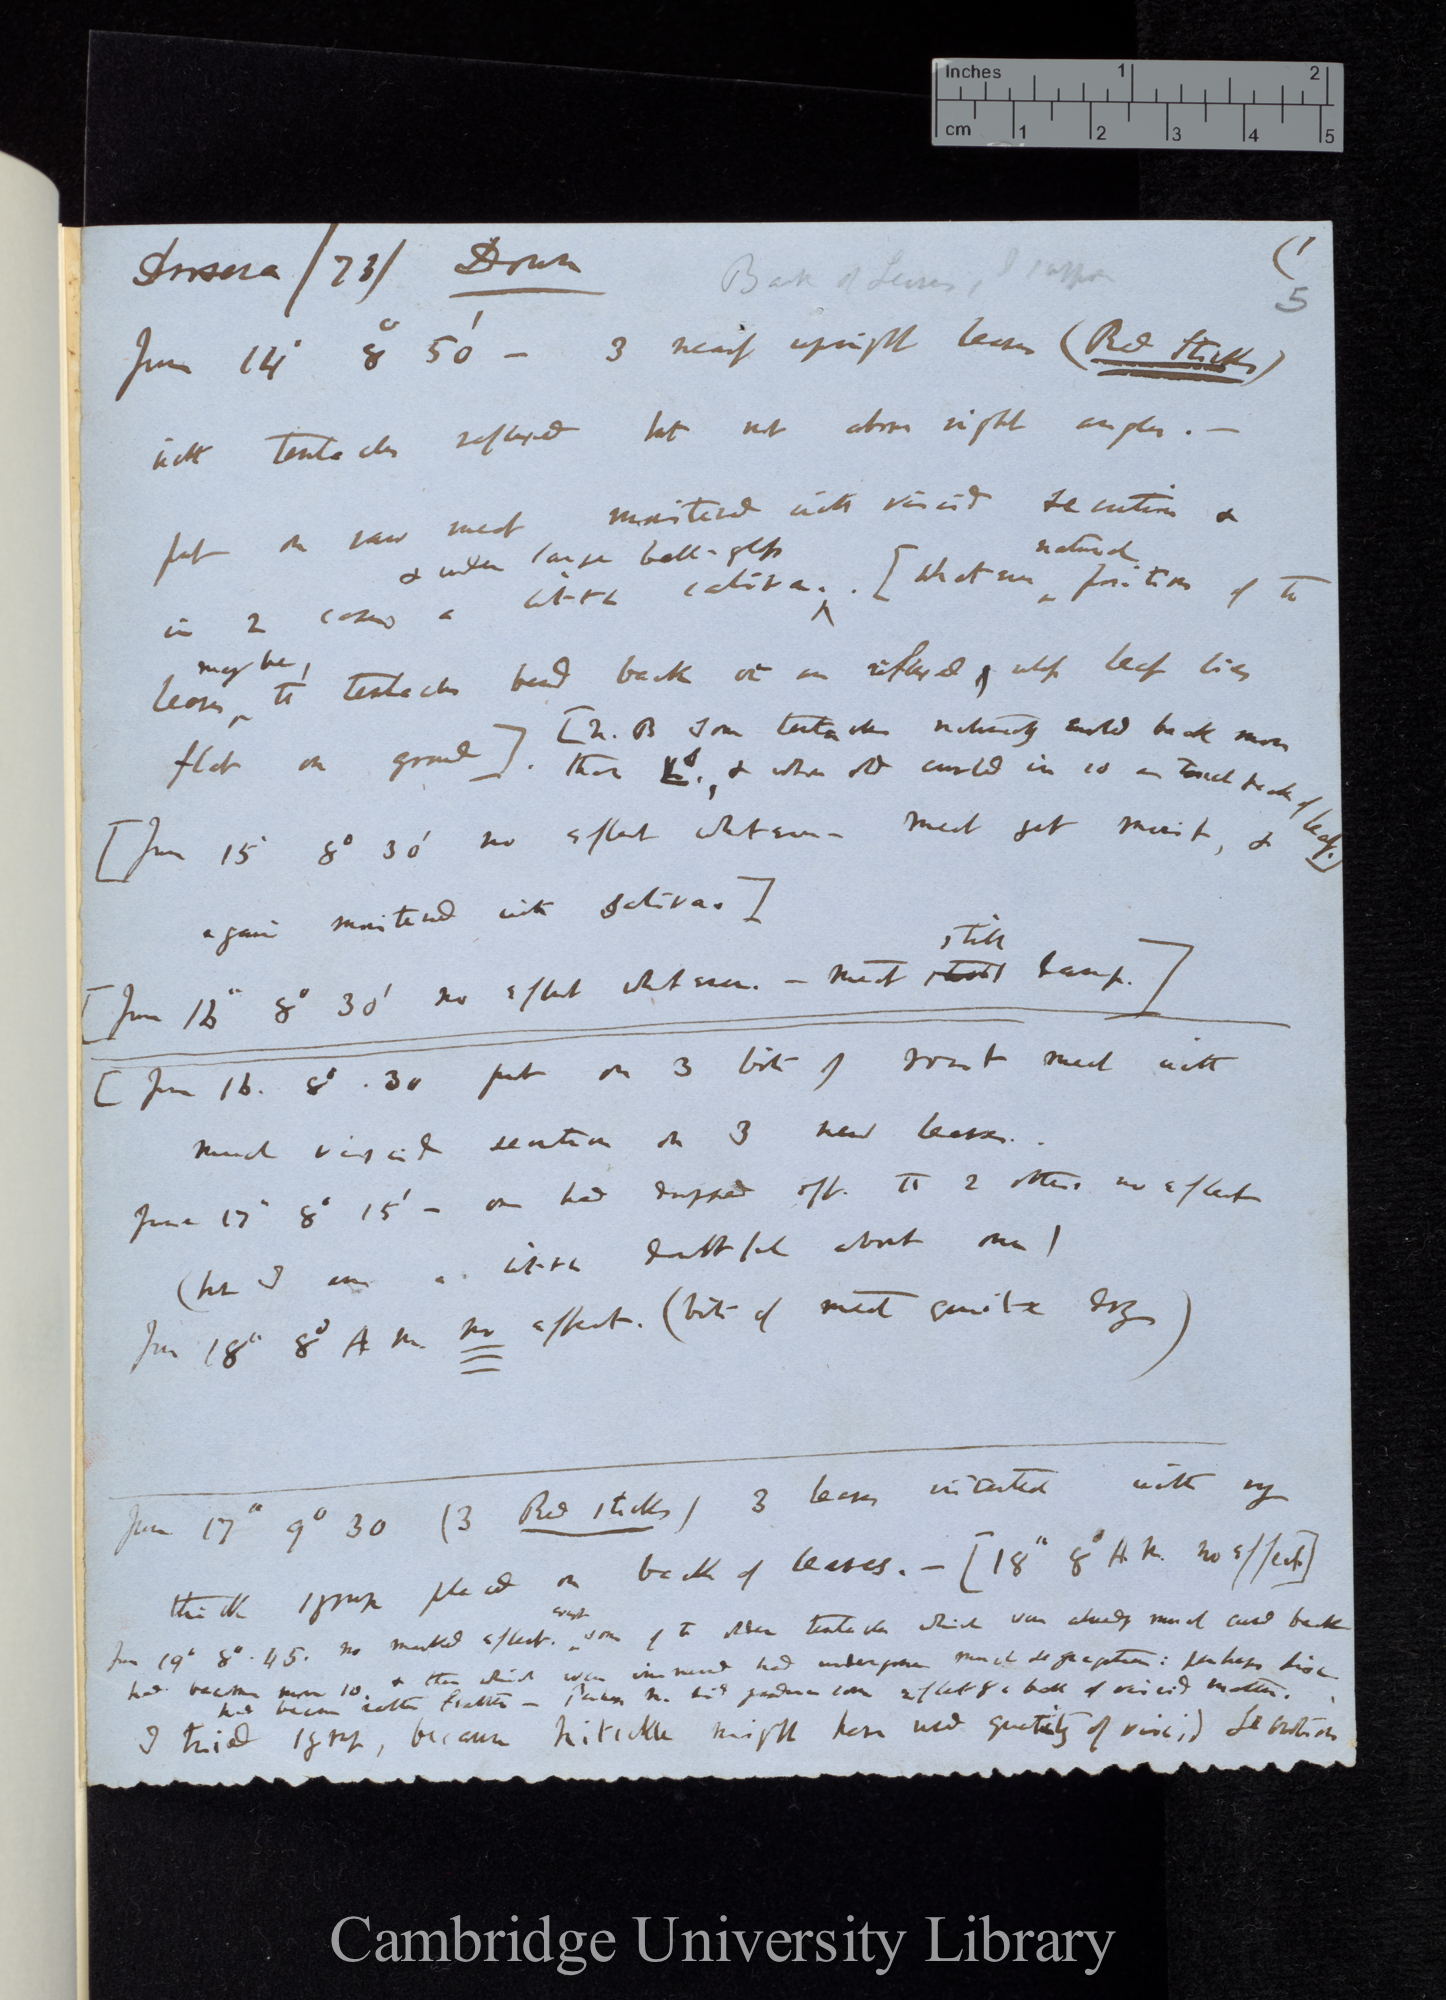 Inches 1 2
cm 1 2 3 4 5
Drosera /73/ Down
Back of Leaves, I suppose
(1
5
June 14" 8° 50' — 3 nearly upright leaves (Red Sticks)
with tentacles reflexed but not above right angles. —
put on raw meat moistened with viscid secretion &
& under large bell-glass
natural
in 2 cases a little saliva. . [Whatever position of the
may be,
leaves, the tentacles bend back or are reflexed, unless leaf lies
flat on ground].
[N. B some tentacles naturally curled back more
than L°., & when old curled in so as touch back of leaf.]
[June 15 8° 30' no effect whatever — meat yet moist, &
again moistened with saliva.]
still
[June 16" 8° 30' no effect whatever. — meat damp.]
[June 16. 8° . 30 put on 3 bits of roast meat with
much viscid secretion on 3 new leaves. .
June 17" 8° 15' — one had dropped off. The 2 others no effect
(but I am a little doubtful about one)
June 18" 8° A m. no effect. (bits of meat quite dry)
June 17" 9° 30 (3 Red sticks) 3 leaves with my
thick syrup placed on back of leaves. — [18" 8° A. m. no effect]
June 19" 8° . 45. no marked effect. some of the older tentacles which were already much curved back
had become more so & these which were immersed had undergone much segregation: perhaps
I tried syrup, because might have used quantity of viscid secretion
Cambridge University Library